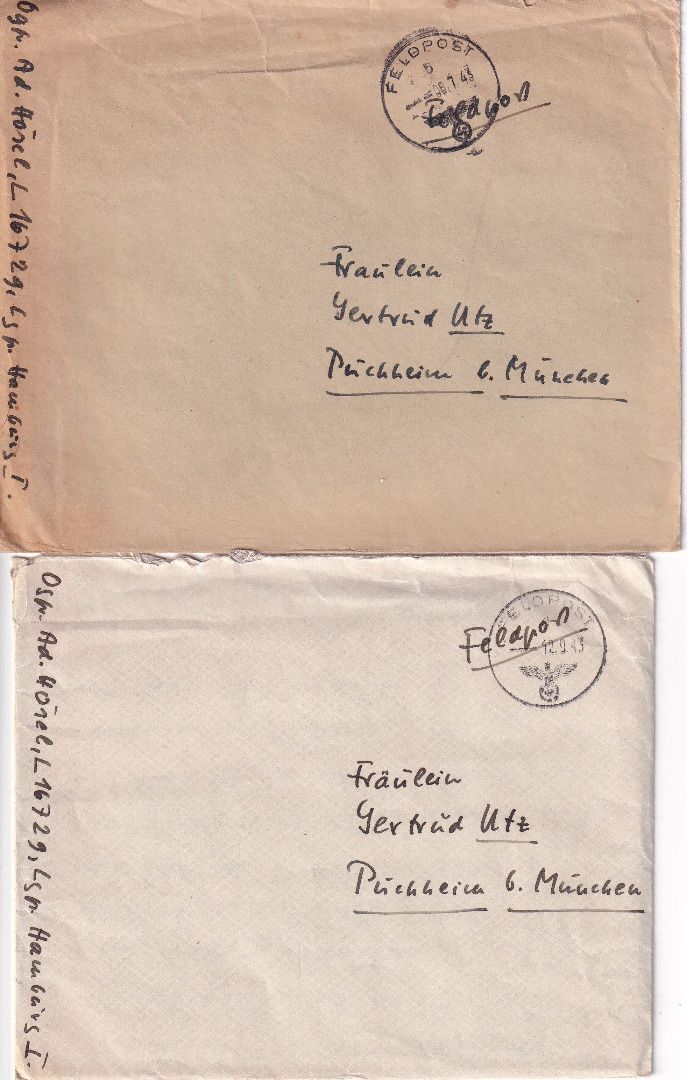 Ogfr. Ad. Hösel, L 16729, Lgpa. Hamburg I.
FELDPOST
b
08.7.43
Feldpost
Fräulein
Gertrud Utz
Puchheim b. München
Ogfr. Ad. Hösel, L 16729, Lgpa. Hamburg I.
FELDPOST
Feldpost
12.9.43
Fräulein
Gertrud Utz
Puchheim b. München